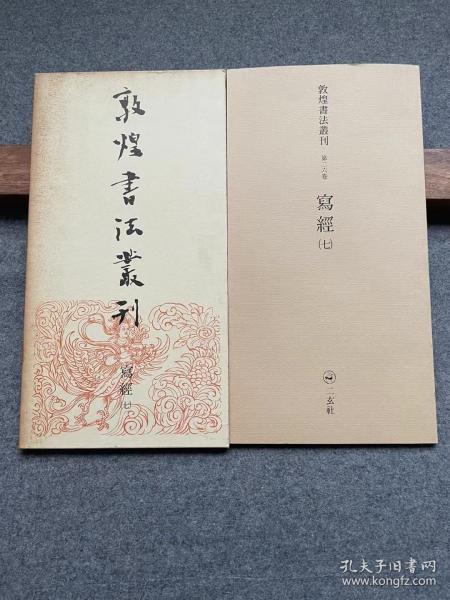 敦煌書法叢刊
寫經
(七)
敦煌書法叢刊
第二六卷
寫經
(七)
二玄社
孔夫子旧书网
www.kongfz.com